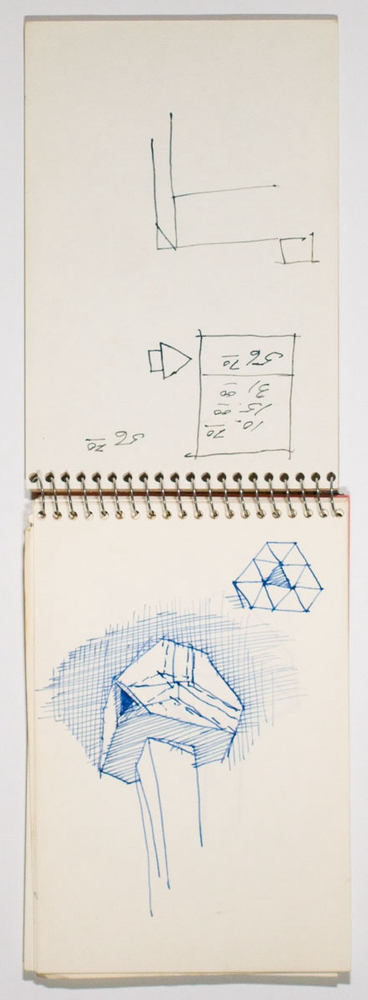 56 70
10. 70
15.00
31,00
56,70